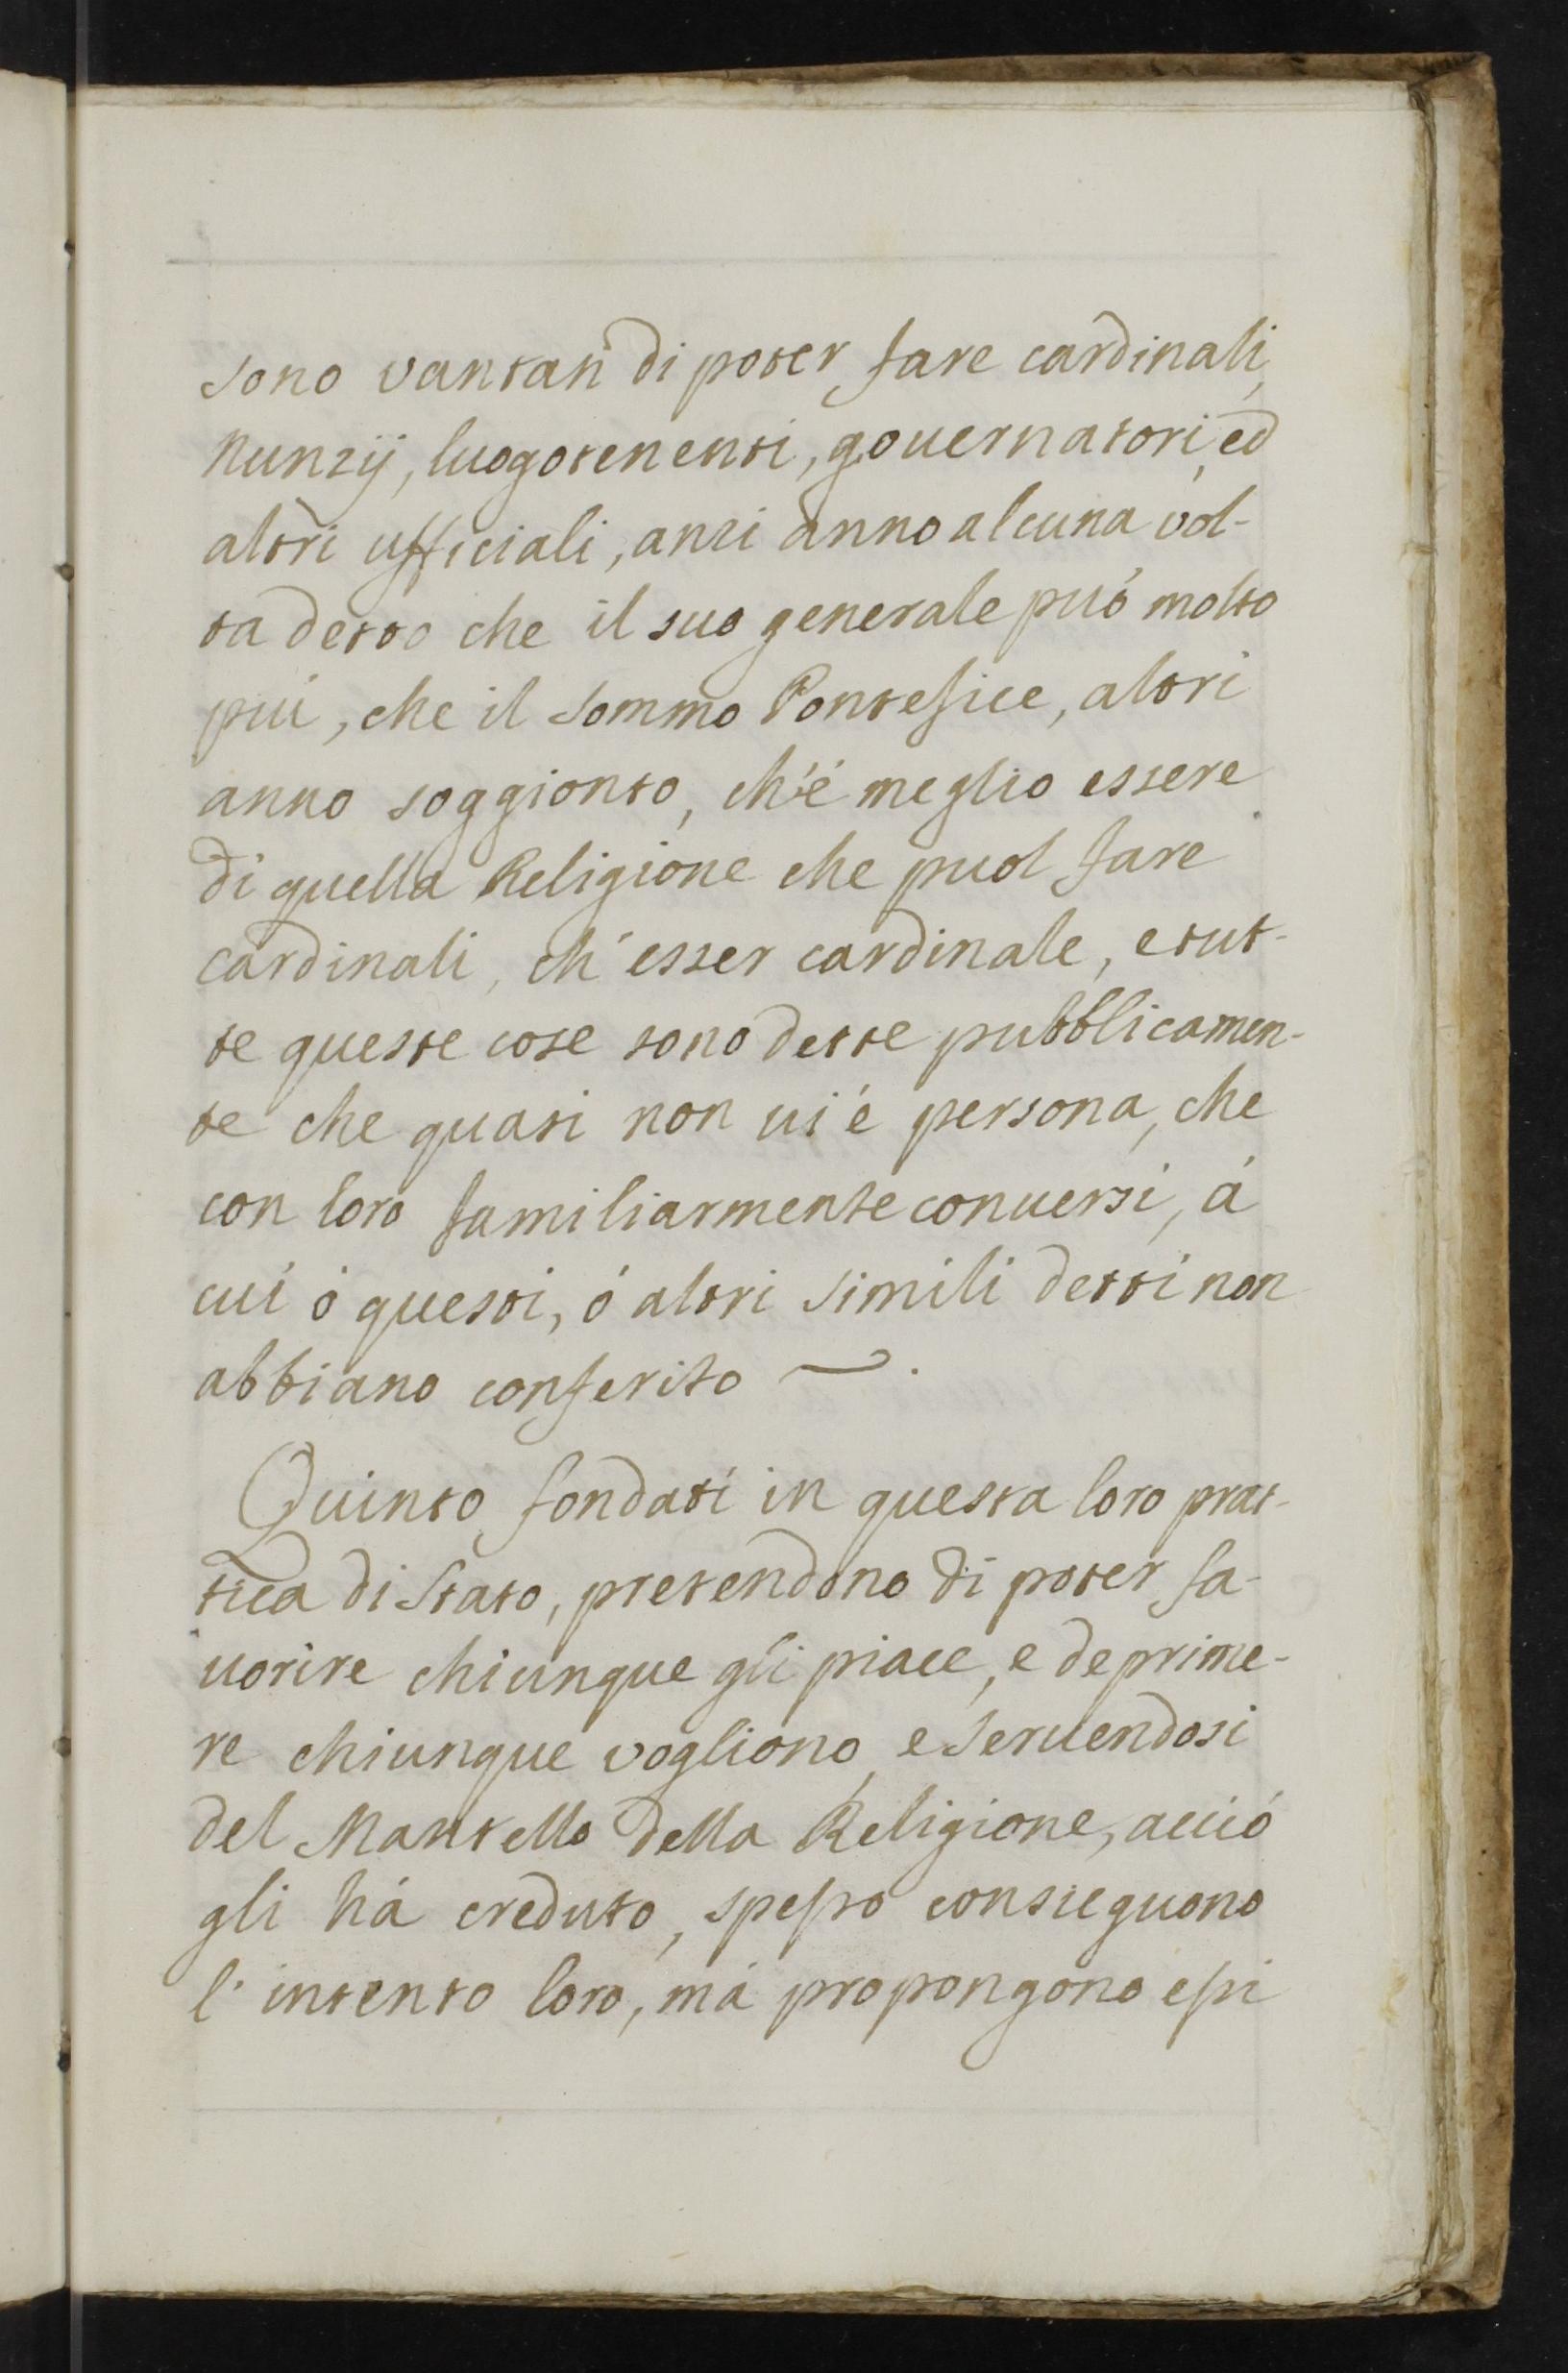 sono vantati di poter fare cardinali,
Nunzij, luogotenenti, gouernatori, ed
altri ufficiali, anzi anno alcuna vol-
ta detto che il suo generale può molto
puì, che il sommo Pontefice, altri
anno soggionto, ch'è meglio essere
di quella Religione che puol fare
cardinali, ch'esser cardinale, e tut-
te queste cose sono dette pubblicamen-
te che quasi non ui é persona, che
con loro familiarmente conuersi, á
cui ó questi, ó altri simili detti non
abbiano conferito ~.
Quinto fondati in questa loro prat-
tica di Stato, pretendono di poter fa-
uorire chiunque gli piace, e deprime-
re chiunque vogliono, e seruendosi
del Mantello della Religione, acció
gli há creduto, spesso consieguono
l'intento loro, má propongono essi